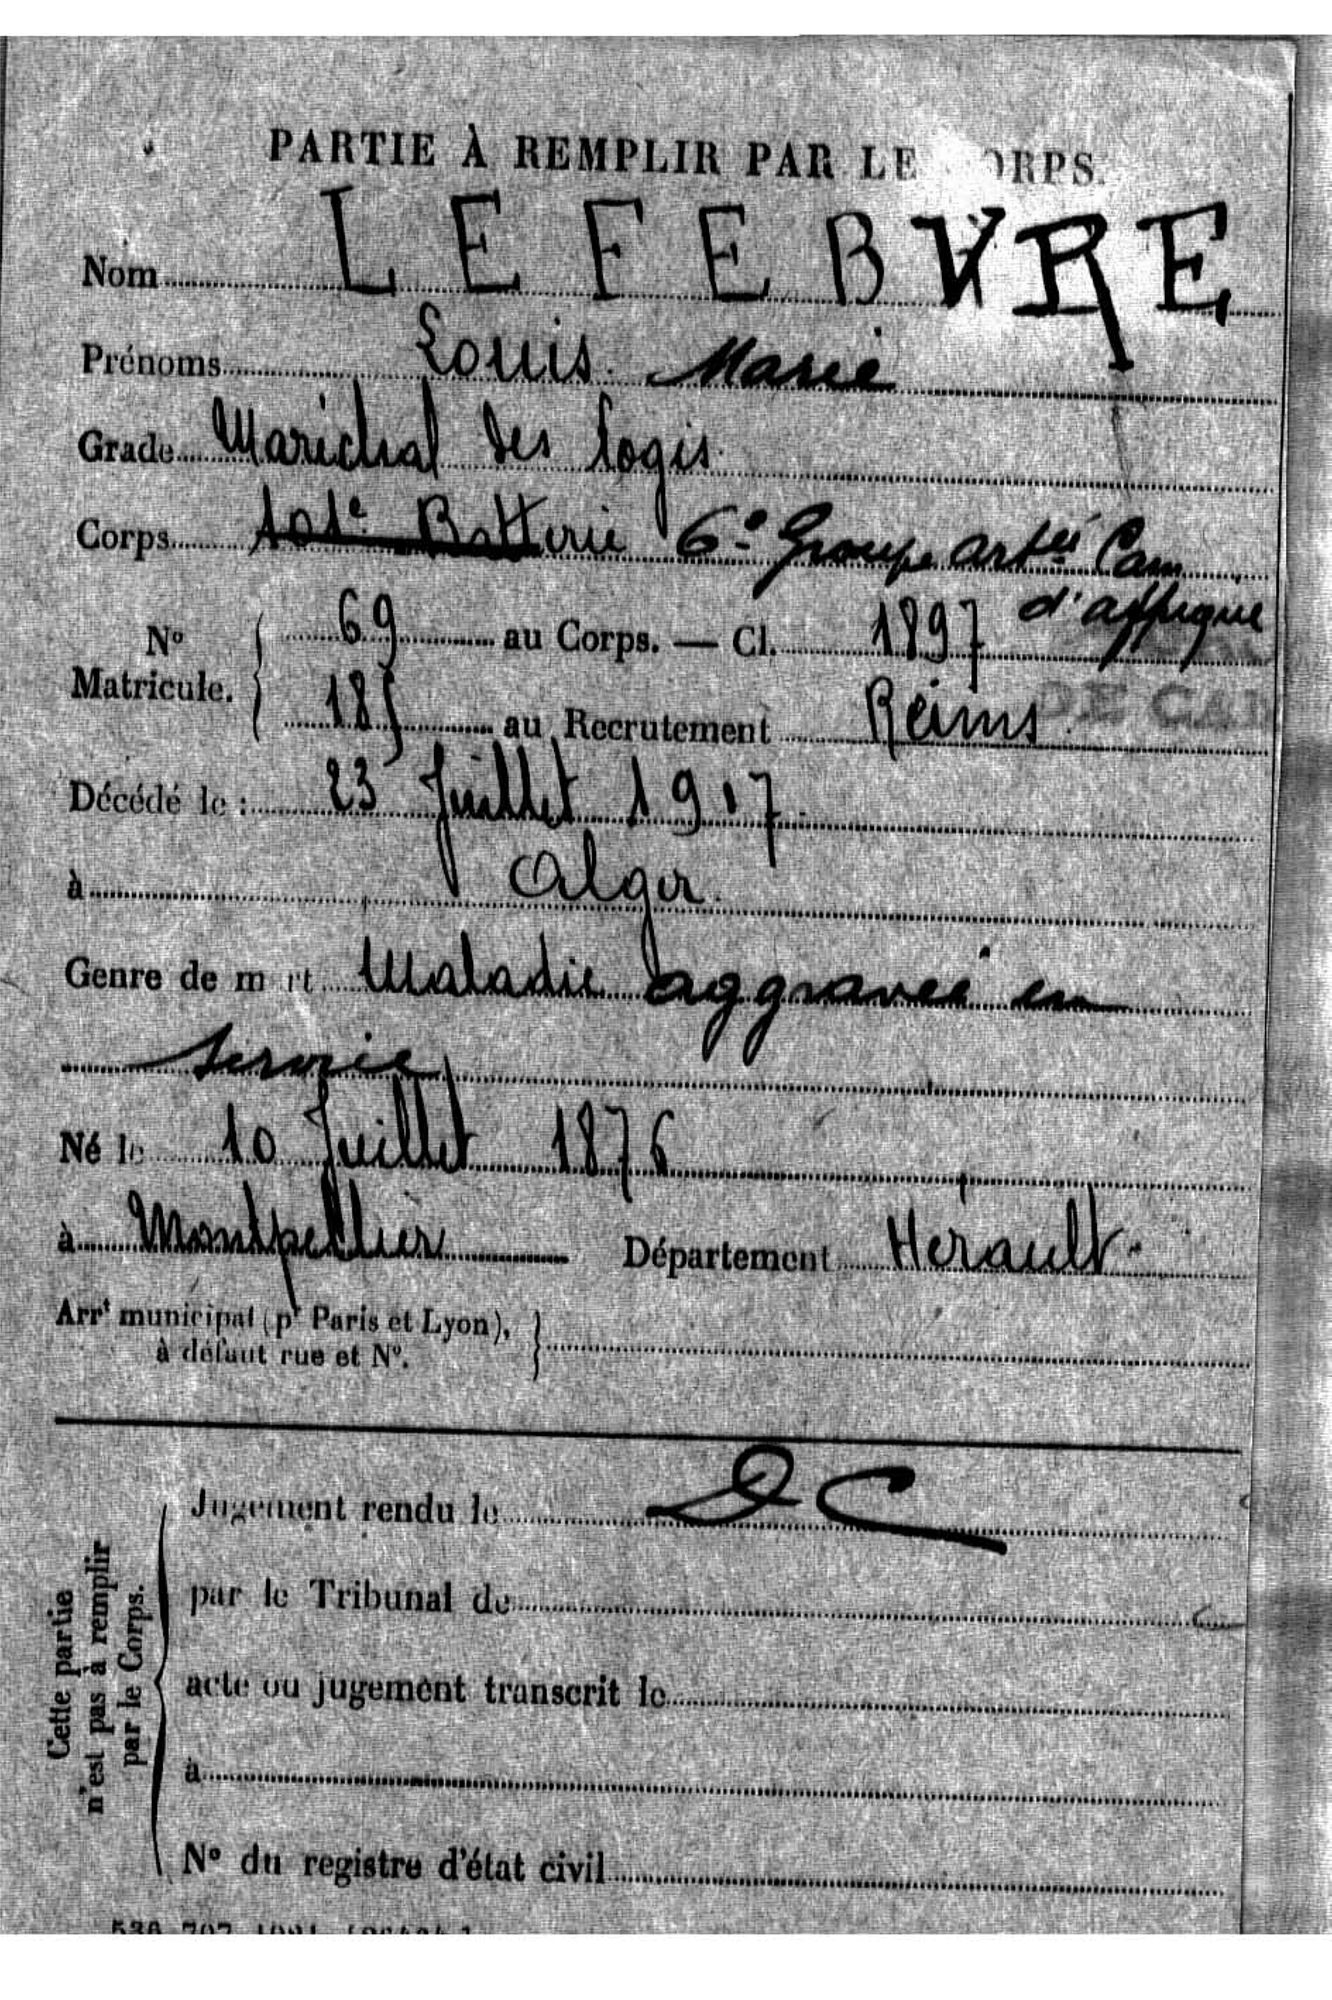 PARTIE À REMPLIR PAR LE CORPS.
Nom LEFEBVRE
Prénoms Louis Marie
Grade Maréchal des logis
Corps Batterie 6e Groupe Artie Cam
d'affrique
No Matricule. 69 au Corps. — Cl. 1897
185 au Recrutement Reims
DE CAM
Décédé le : 23 Juillet 1917
à Alger.
Genre de mort Maladie aggravée en
service
Né le 10 Juillet 1876
à Montpellier Département Hérault.
Arrt municipal (pr Paris et Lyon),
à défaut rue et No.
Cette partie
n'est pas à remplir
par le Corps.
Jugement rendu le DC
par le Tribunal de
acte ou jugement transcrit le
à
No du registre d'état civil